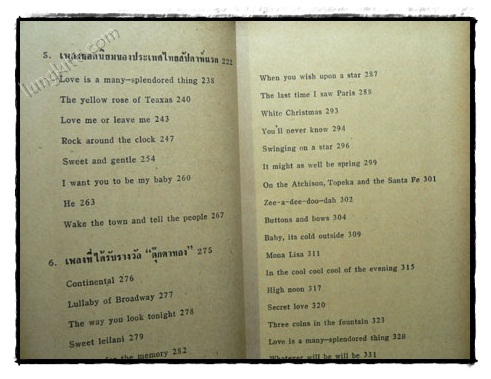 lungkitti.com
5. เพลงยอดนิยมของประเทศไทยสัปดาห์แรก 221
Love is a many-splendored thing 238
The yellow rose of Teaxas 240
Love me or leave me 243
Rock around the clock 247
Sweet and gentle 254
I want you to be my baby 260
He 263
Wake the town and tell the people 267
6. เพลงที่ได้รับรางวัล "ตุ๊กตาทอง" 275
Continental 276
Lullaby of Broadway 277
The way you look tonight 278
Sweet leilani 279
for the memory 282
When you wish upon a star 287
The last time I saw Paris 288
White Christmas 293
You'll never know 294
Swinging on a star 296
It might as well be spring 299
On the Atchison, Topeka and the Santa Fe 301
Zee-a-dee-doo-dah 302
Buttons and bows 304
Baby, its cold outside 309
Mona Lisa 311
In the cool cool cool of the evening 315
High noon 317
Secret love 320
Three coins in the fountain 323
Love is a many-splendored thing 328
Whatever will be will be 331